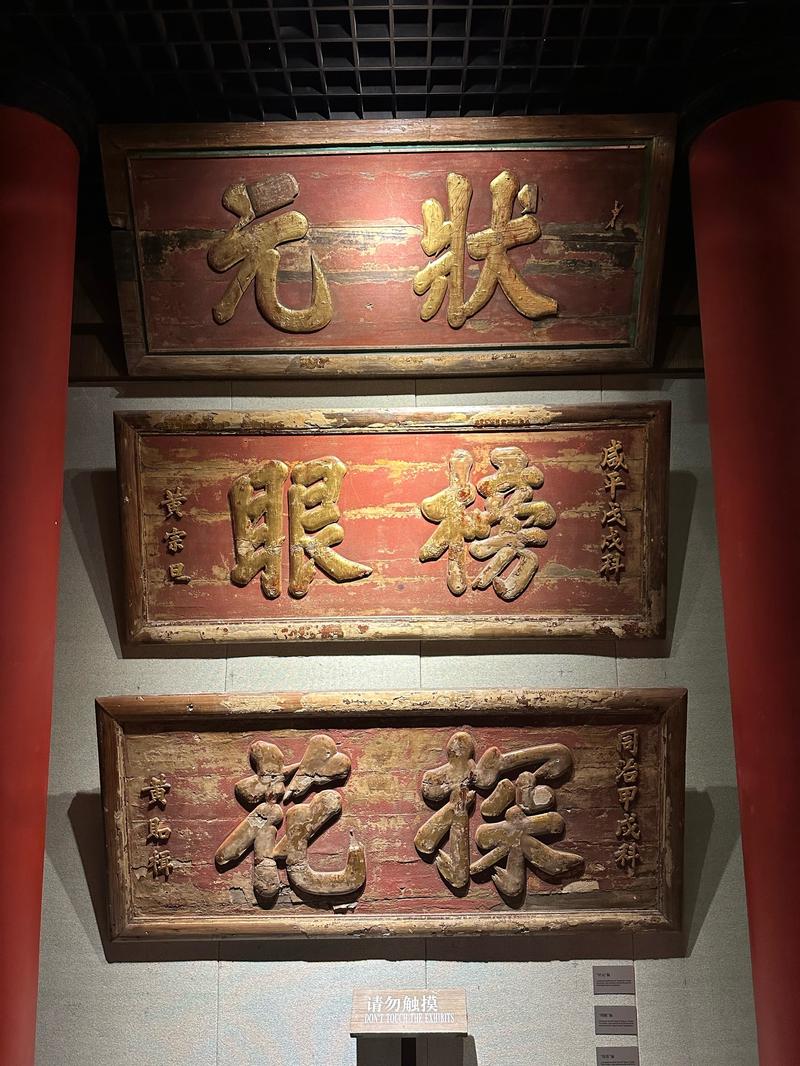 状元
咸平戊戌科
榜眼
黃宗旦
同治甲戌科
探花
黃貽楫
请勿触摸
DON'T TOUCH THE EXHIBITS